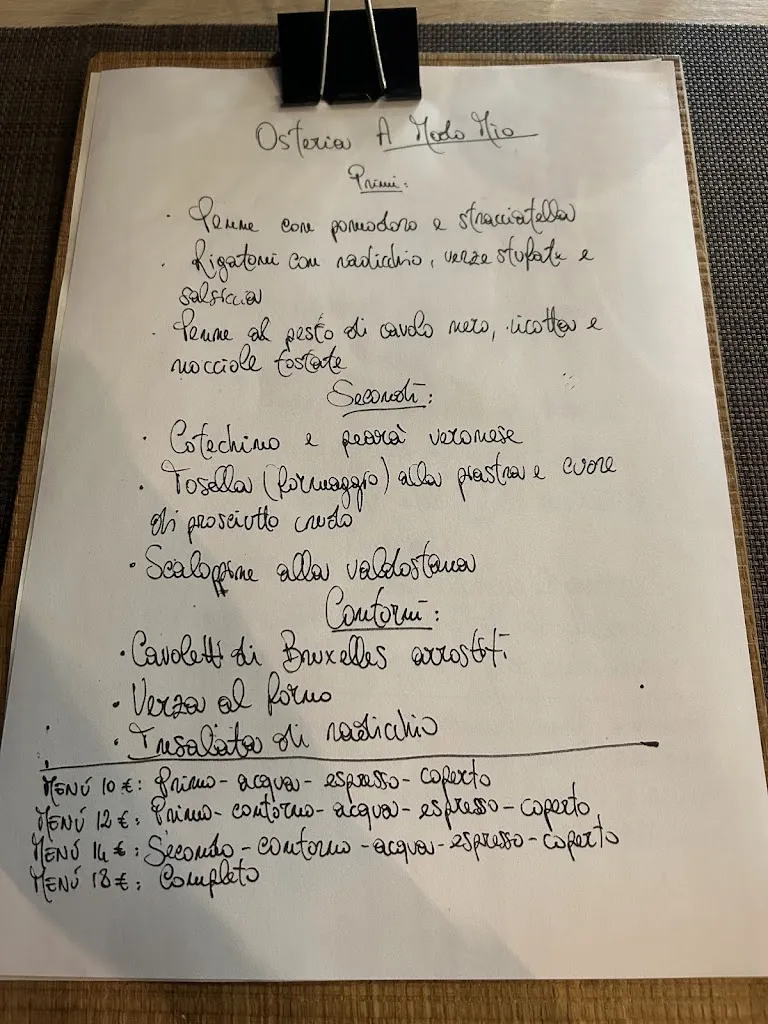 Osteria A Modo Mio
Primi:
· Penne con pomodoro e stracciatella
· Rigatoni con radicchio, verze stufate e
salsiccia
· Penne al pesto di cavolo nero, ricotta e
nocciole tostate
Secondi:
· Cotechino e pearà veronese
· Tosella (formaggio) alla piastra e cuore
di prosciutto crudo
· Scaloppine alla valdostana
Contorni:
· Cavoletti di Bruxelles arrostiti
· Verza al forno
· Insalata di radicchio
MENÚ 10 €: Primo - acqua - espresso - coperto
MENÚ 12 €: Primo - contorno - acqua - espresso - coperto
MENÚ 14 €: Secondo - contorno - acqua - espresso - coperto
MENÚ 18 €: Completo